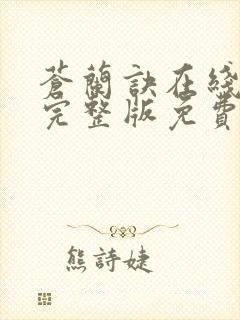 蒼蘭訣在綫
完整版免費
熊詩婕